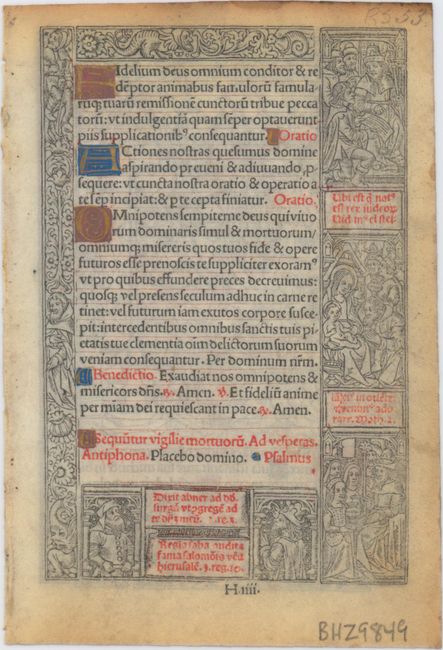 Fidelium deus omnium conditor & re
dẽptor animabus famulorũ famula
rũq; tuarũ remissionẽ cunctorũ tribue pecca
torũ: vt indulgentiã quã semper optauerunt
piis supplicationibꝰ consequantur. Oratio
ACtiones nostras quesumus domine
aspirando preueni & adiuuando, p
sequere: vt cuncta nostra oratio & operatio a
te sẽp incipiat: & p te cepta finiatur. Oratio.
OMnipotens sempiterne deus qui viuo
rum dominaris simul & mortuorum/
omniumq; misereris quos tuos fide & opere
futuros esse prenoscis te suppliciter exoramꝰ
vt pro quibus effundere preces decreuimus:
quosq; vel presens seculum adhuc in carne re
tinet: vel futurum iam exutos corpore susce-
pit: intercedentibus omnibus sanctis tuis pi
etatis tue clementia oĩm delictorum suorum
veniam consequantur. Per dominum nr̃m.
Benedictio. Exaudiat nos omnipotens &
misericors dñs. ℟. Amen. ℣. Et fideliũ anime
per miam dei requiescant in pace. ℟. Amen.
Sequũtur vigilie mortuorũ. Ad vesperas.
Antiphona. Placebo domino. Psalmus
Vbi est q̃ natꝰ
est rex iudeoꝝ
Math. 2.
Dixit abner ad dd
surgã vt ꝯgregẽ ad
te
Regina saba audita
fama salomõis veñ
hierusalẽ. 3. reg. 10.
H.iiii.
BHZ9849